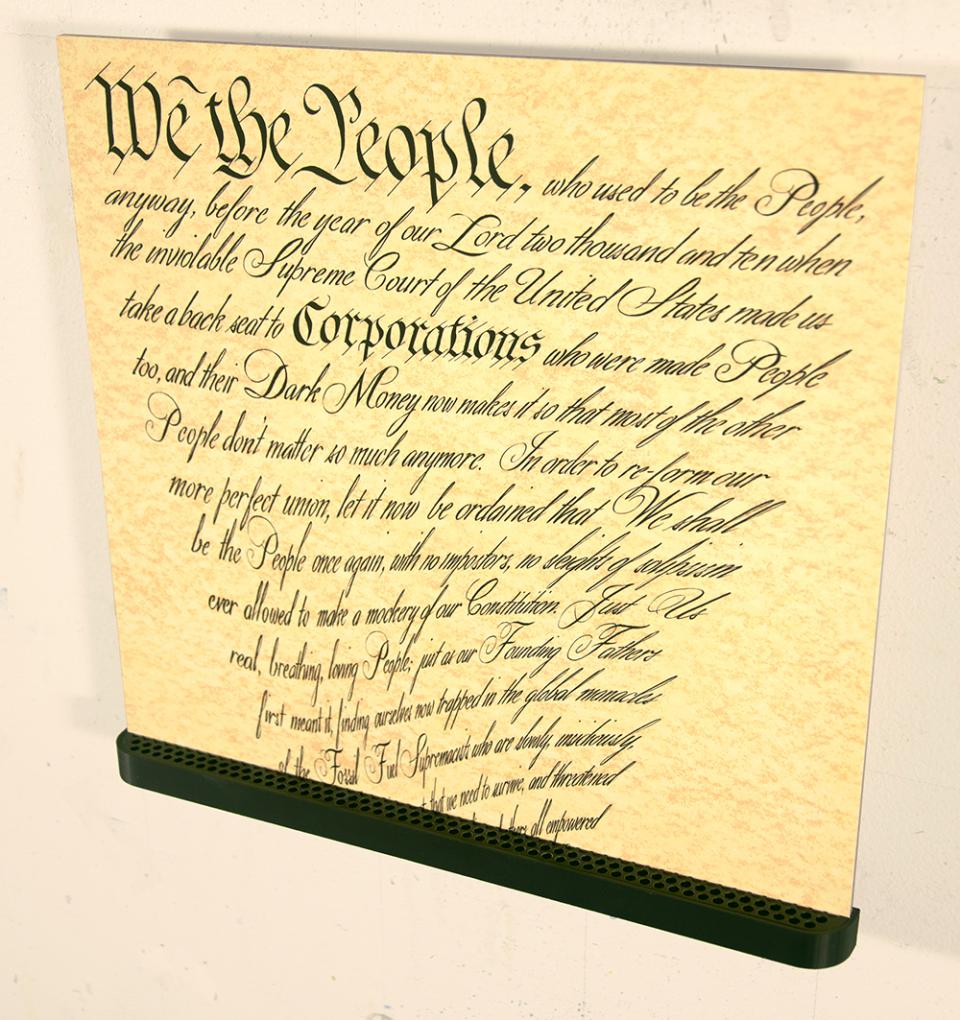 We the People, who used to be the People,
anyway, before the year of our Lord two thousand and ten when
the inviolable Supreme Court of the United States made us
take a back seat to Corporations who were made People
too, and their Dark Money now makes it so that most of the other
People don't matter so much anymore. In order to re-form our
more perfect union, let it now be ordained that We shall
be the People once again, with no impostors, no sleights of solipsism
ever allowed to make a mockery of our Constitution. Just Us
real, breathing, loving People; just as our Founding Fathers
first meant it, finding ourselves now trapped in the global manacles
of the Fossil Fuel Supremacists who are slowly, insidiously,
that we need to survive, and threatened
all empowered